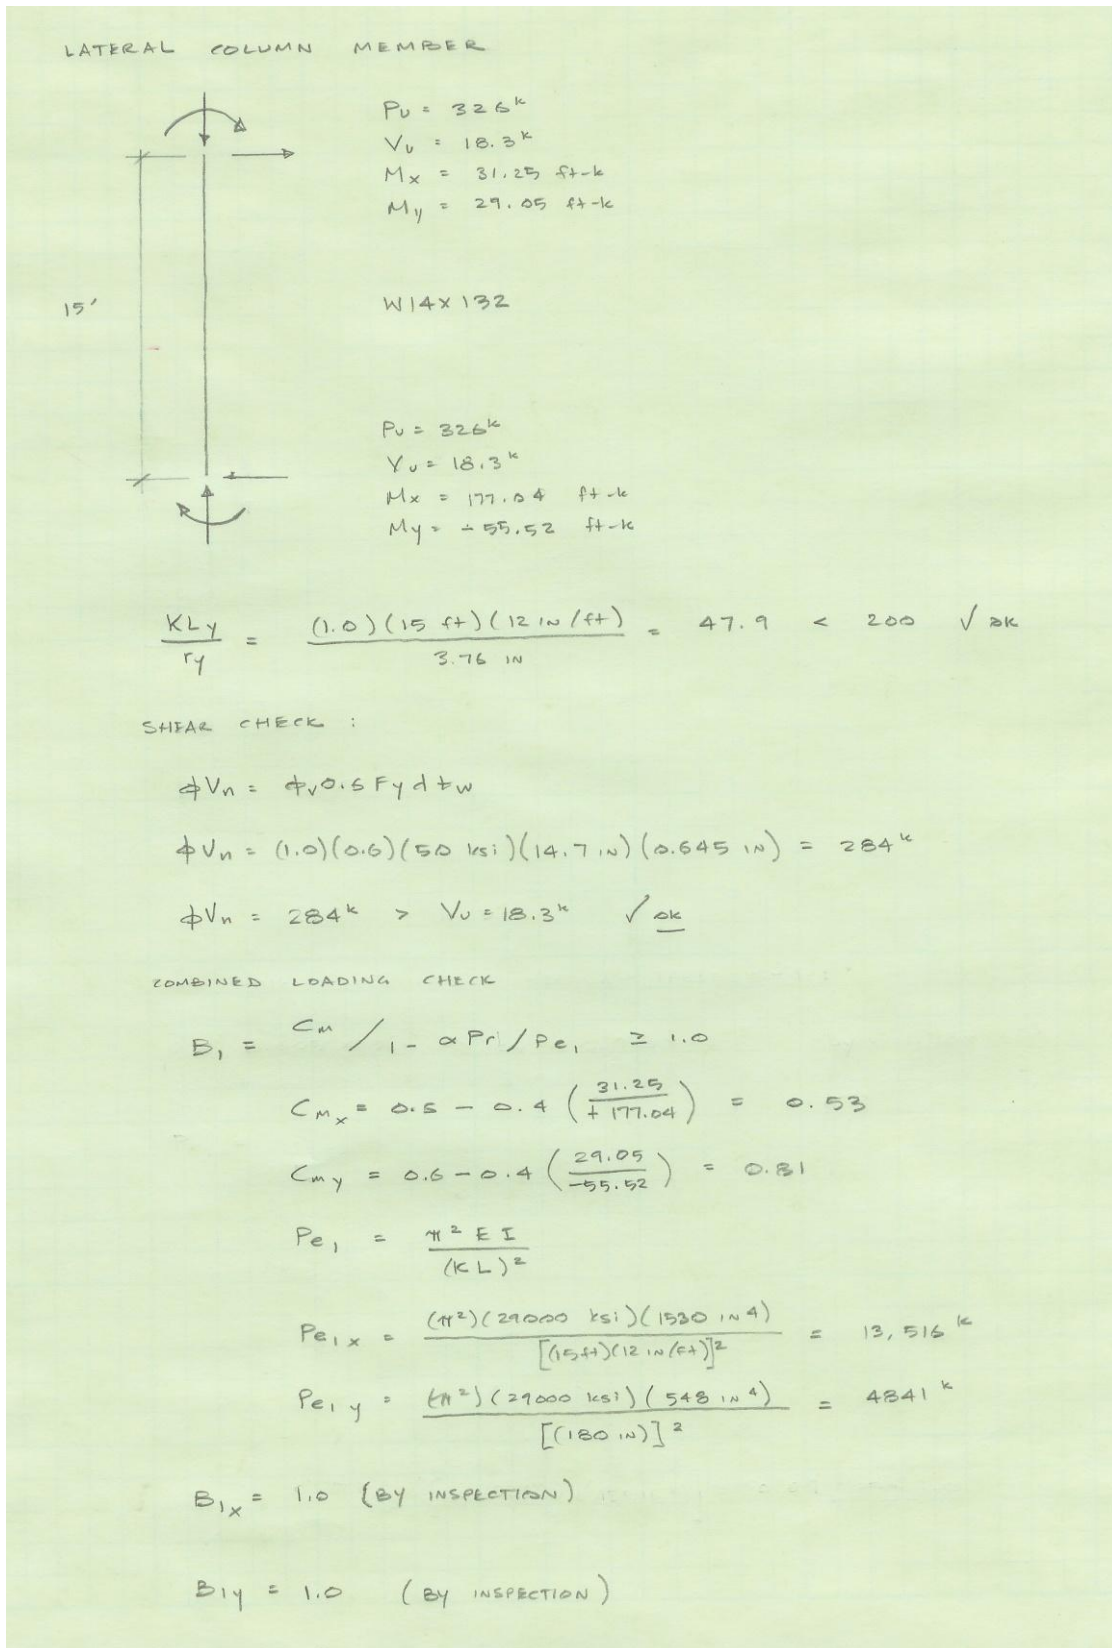 LATERAL COLUMN MEMBER
Pu = 326k
Vu = 18.3k
Mx = 31.25 ft-k
My = 29.05 ft-k
15'
W14x132
Pu = 326k
Vu = 18.3k
Mx = 177.04 ft-k
My = -55.52 ft-k
KLy / ry = (1.0)(15 ft)(12 IN/ft) / 3.76 IN = 47.9 < 200 √ OK
SHEAR CHECK :
ϕVn = ϕv0.6Fydtw
ϕVn = (1.0)(0.6)(50 ksi)(14.7 IN)(0.645 IN) = 284k
ϕVn = 284k > Vu = 18.3k √ OK
COMBINED LOADING CHECK
B1 = Cm / 1 - αPr/Pe1 ≥ 1.0
Cmx = 0.6 - 0.4 (31.25 / +177.04) = 0.53
Cmy = 0.6 - 0.4 (29.05 / -55.52) = 0.81
Pe1 = π²EI / (KL)²
Pe1x = (π²)(29000 ksi)(1530 IN4) / [(15ft)(12 IN/ft)]² = 13,516 k
Pe1y = (π²)(29000 ksi)(548 IN4) / [(180 IN)]² = 4841 k
B1x = 1.0 (BY INSPECTION)
B1y = 1.0 (BY INSPECTION)